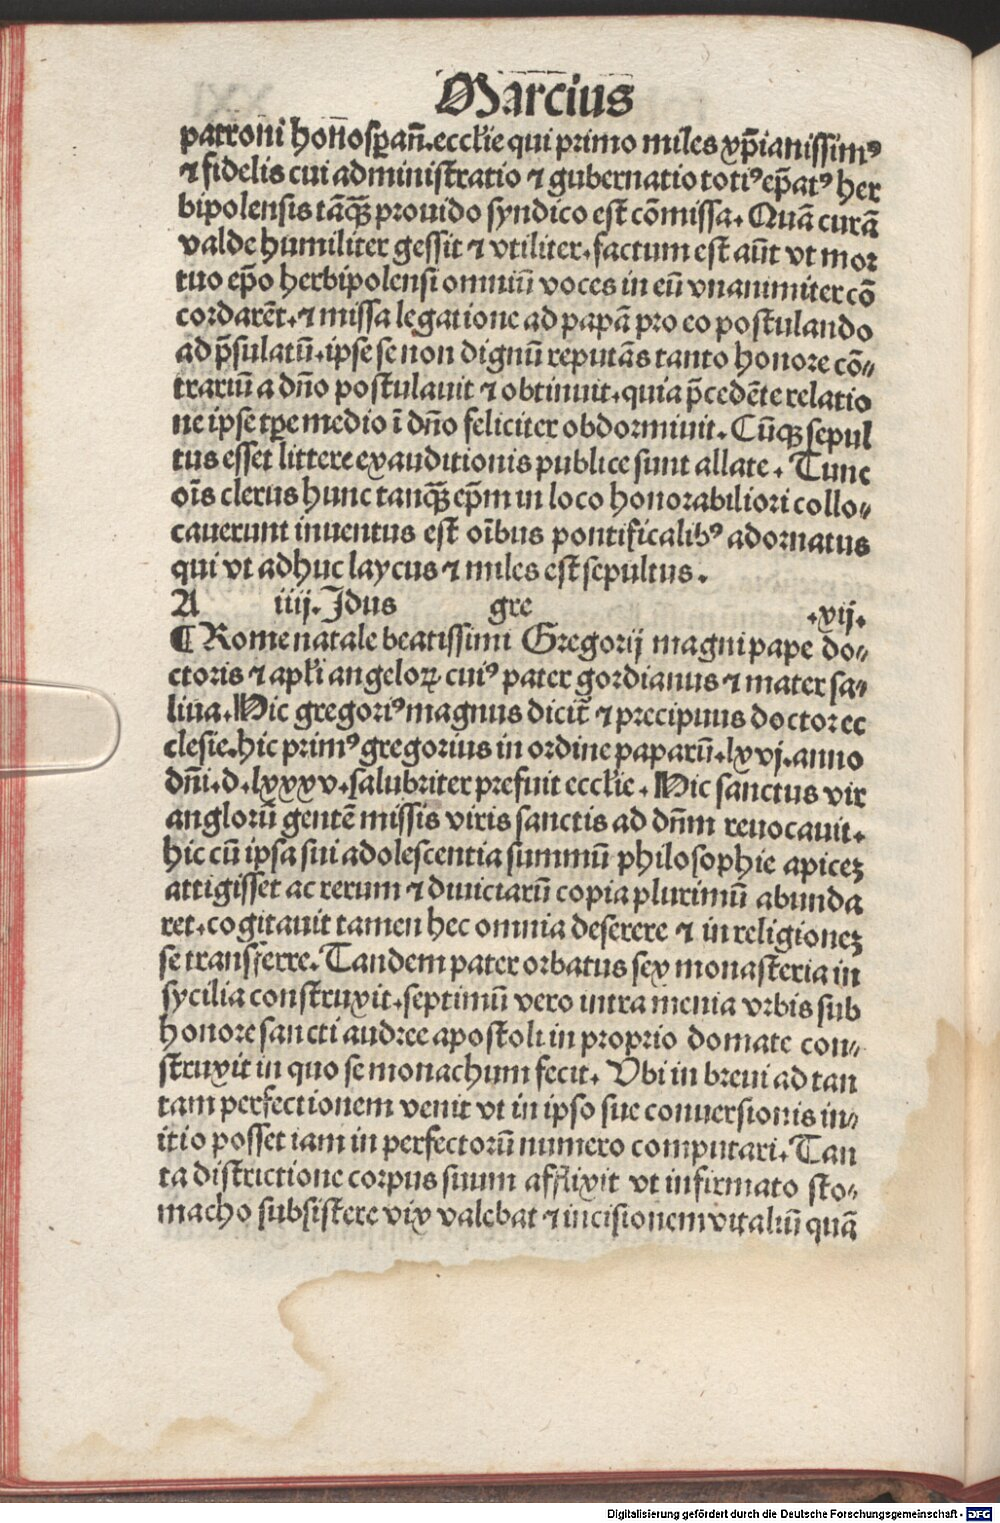 Marcius
patroni honoꝑañ. eccłie qui primo miles xp̄ianissimꝰ
⁊ fidelis cui administratio ⁊ gubernatio totiꝰ ep̄atꝰ her
bipolensis tāq̄ꝫ prouido syndico est cōmissa. Quā curā
valde humiliter gessit ⁊ vtiliter. factum est aūt vt mor
tuo ep̄o herbipolensi omniū voces in eū vnanimiter cō
cordarēt. ⁊ missa legatione ad papā pro eo postulando
ad p̄sulatū. ipse se non dignū reputās tanto honore cō⸗
trariū a dño postulauit ⁊ obtinuit. quia p̄cedēte relatio
ne ipse tꝑe medio ī dño feliciter obdormiuit. Cūqꝫ sepul
tus esset littere exauditionis publice sunt allate. Tunc
oīs clerus hunc tanq̄ꝫ ep̄m in loco honorabiliori collo⸗
cauerunt inuentus est oībus pontificalibꝰ adornatus
qui vt adhuc laycus ⁊ miles est sepultus.
A iiij. Idus gre .xij.
¶ Rome natale beatissimi Gregorij magni pape do⸗
ctoris ⁊ apłi angeloꝝ cuiꝰ pater gordianus ⁊ mater sa⸗
liua. Hic gregoriꝰ magnus dicit᷑ ⁊ precipuus doctor ec
clesie. hic primꝰ gregorius in ordine paparū. lxvj. anno
dñi. d. lxxxv. salubriter prefuit eccłie. Hic sanctus vir
anglorū gentē missis viris sanctis ad dñm reuocauit.
hic cū ipsa sui adolescentia summū philosophie apiceꝫ
attigisset ac rerum ⁊ diuiciarū copia plurimū abunda
ret. cogitauit tamen hec omnia deserere ⁊ in religioneꝫ
se transferre. Tandem pater orbatus sex monasteria in
sycilia construxit. septimū vero intra menia vrbis sub
honore sancti audree apostoli in proprio domate con⸗
struxit in quo se monachum fecit. Vbi in breui ad tan
tam perfectionem venit vt in ipso sue conuersionis in⸗
itio posset iam in perfectorū numero computari. Tan
ta districtione corpus suum afflixit vt infirmato sto⸗
macho subsistere vix valebat ⁊ incisionem vitaliū quā
Digitalisierung gefördert durch die Deutsche Forschungsgemeinschaft - DFG